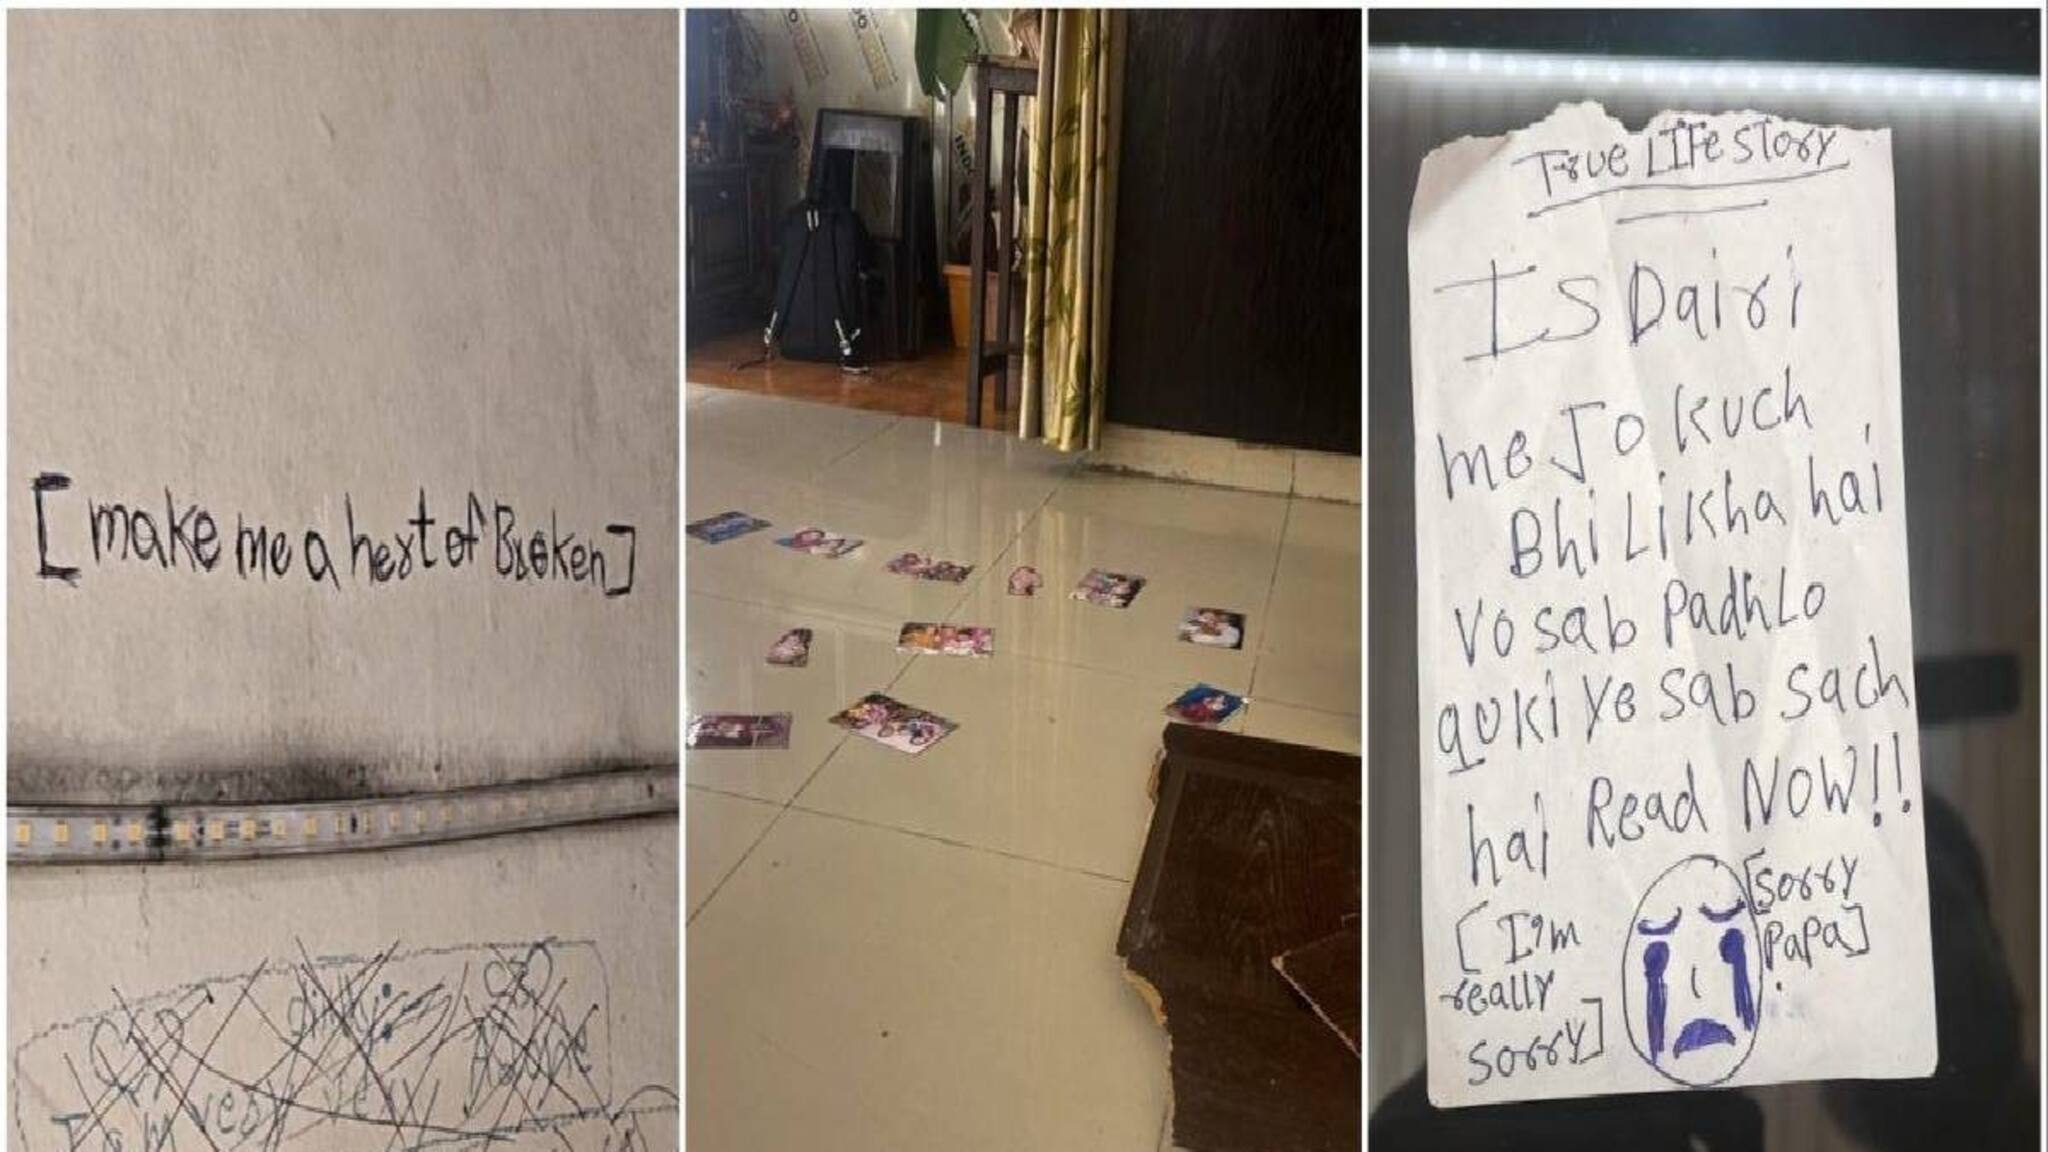 [make me a hert of Broken]
I am very very
alone
INDI
True LIFe Story
IS Dairi
me Jo kuch
Bhi Likha hai
Vo sab PadhLo
quki ye sab sach
hai Read NOW!!
[I'm
really
sorry]
[sorry
PaPa]